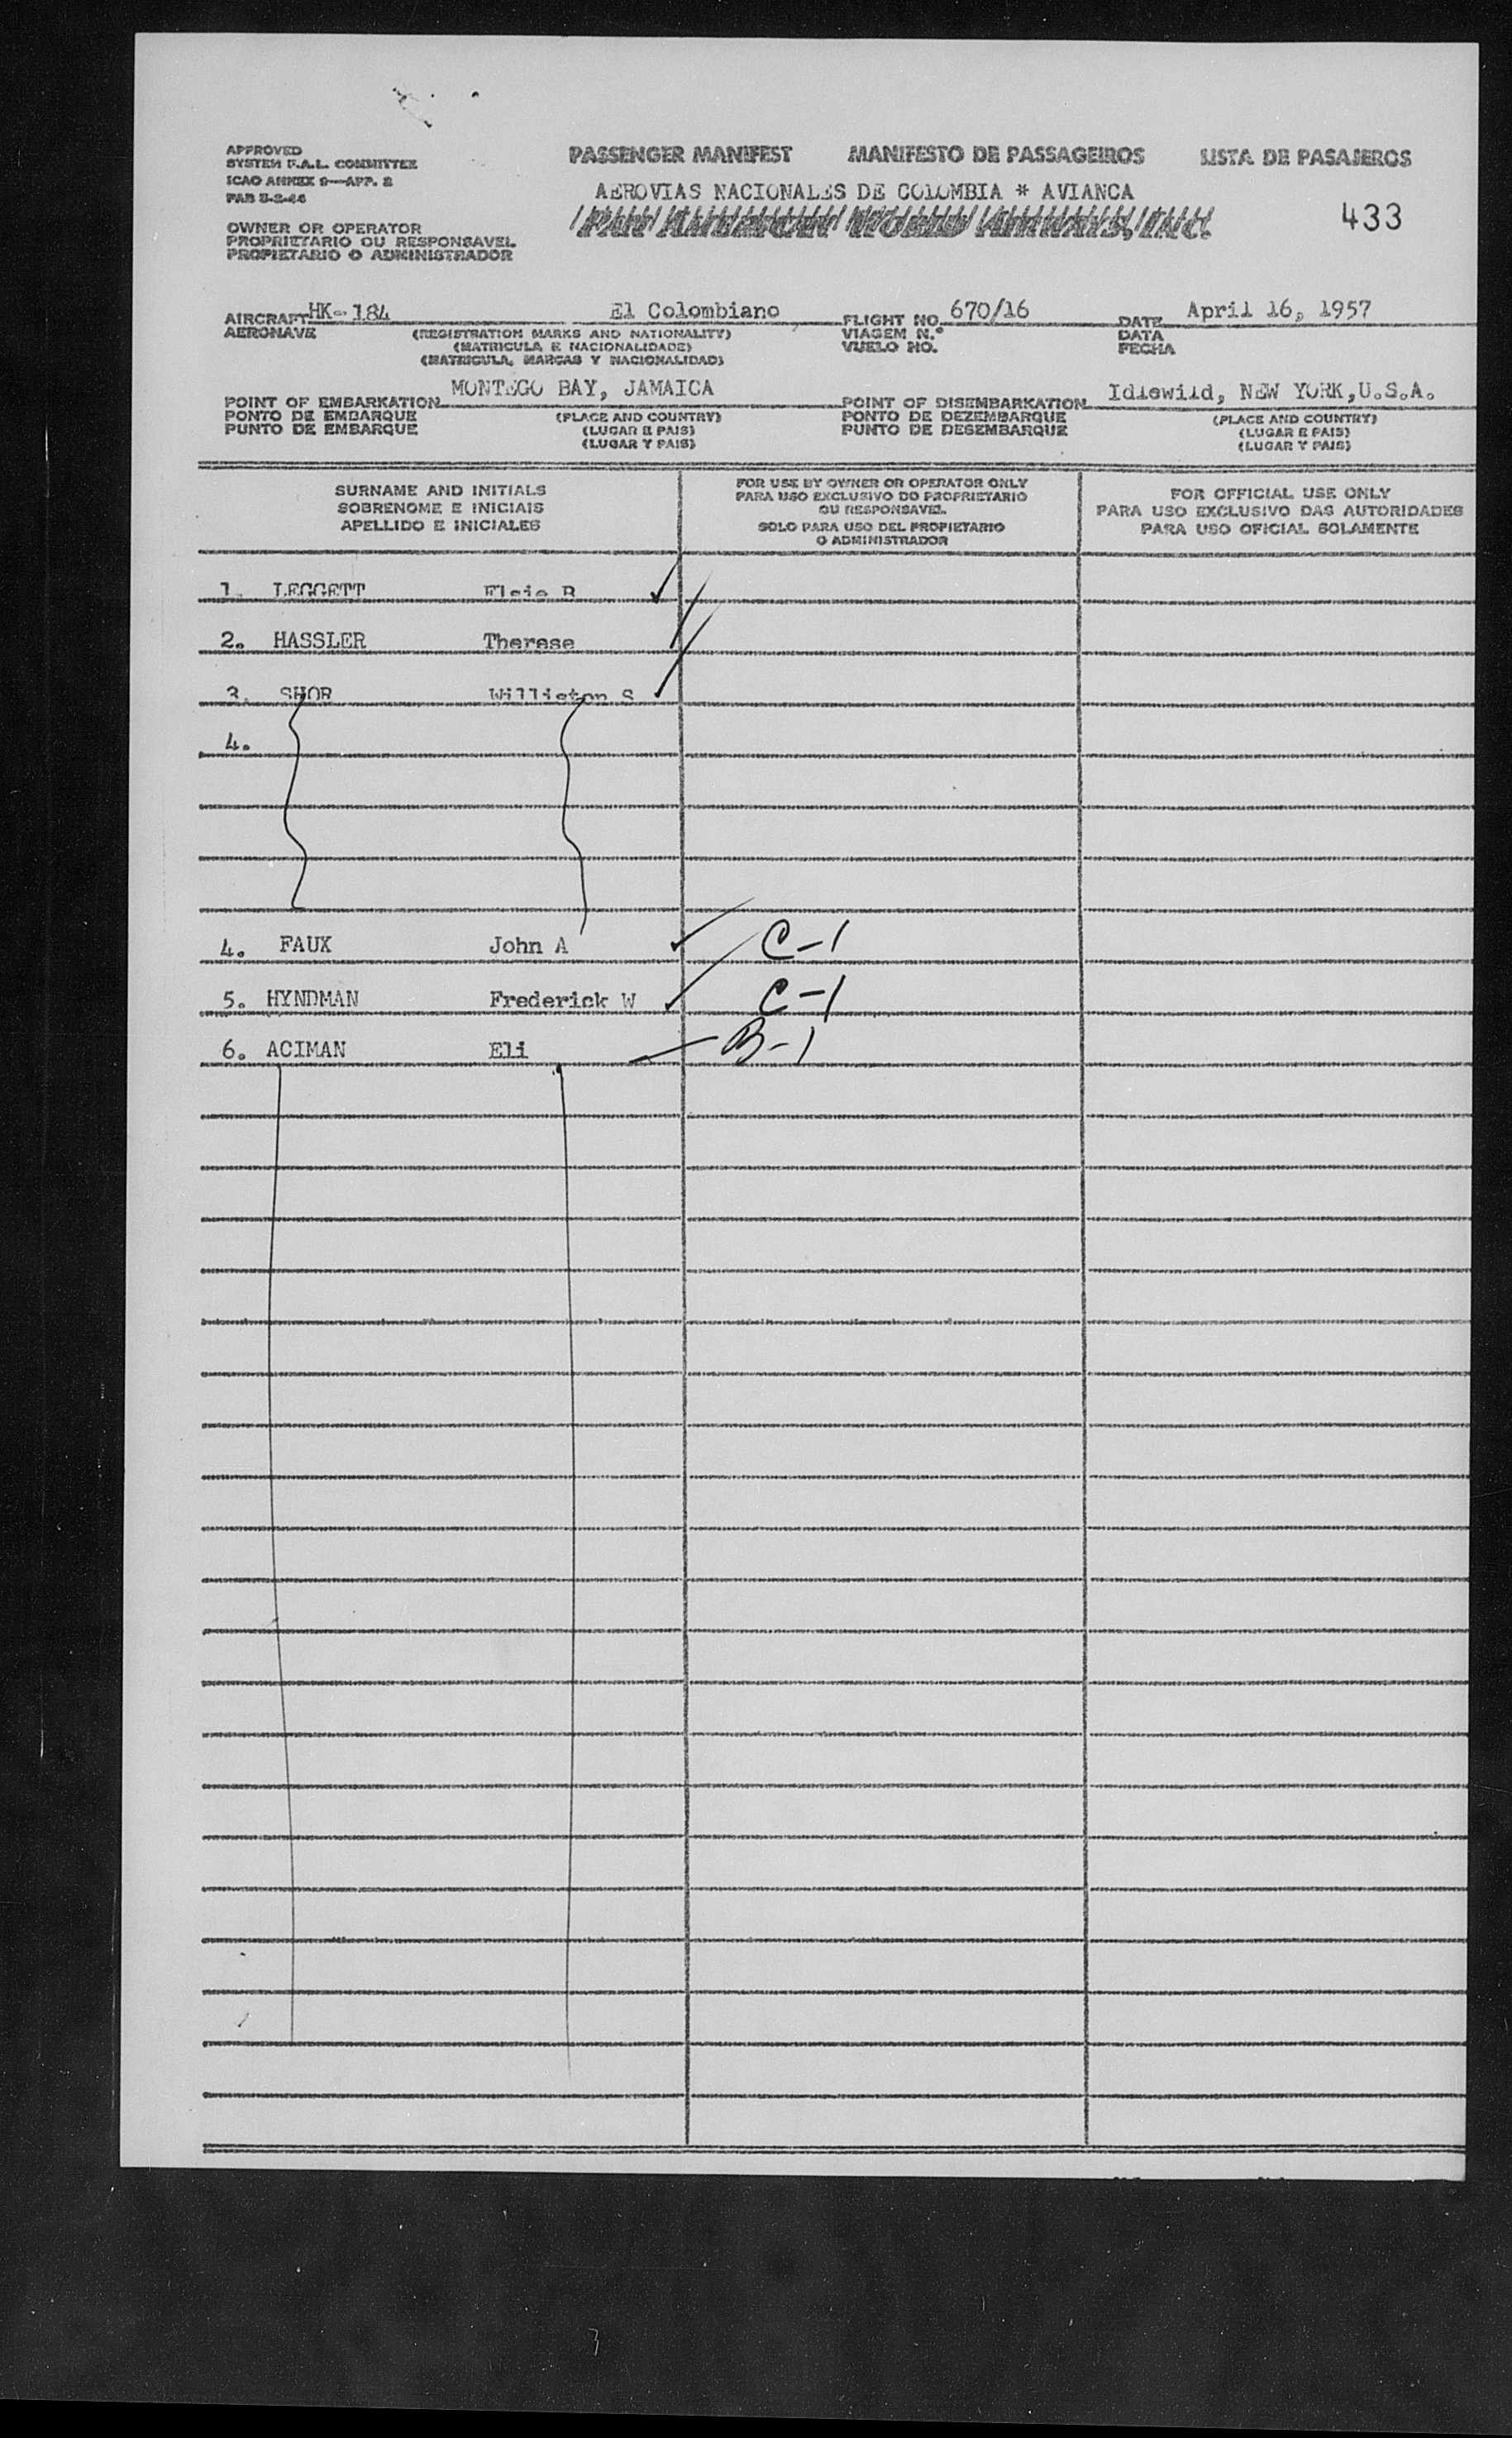 APPROVED
SYSTEM F.A.L. COMMITTEE
ICAO ANNEX 9—APP. 2
PAB 3-2-44
PASSENGER MANIFEST MANIFESTO DE PASSAGEIROS LISTA DE PASAJEROS
AEROVIAS NACIONALES DE COLOMBIA * AVIANCA
PAN AMERICAN WORLD AIRWAYS, INC.
433
OWNER OR OPERATOR
PROPRIETARIO OU RESPONSAVEL
PROPIETARIO O ADMINISTRADOR
AIRCRAFT HK-184 El Colombiano FLIGHT NO. 670/16 DATE April 16, 1957
AERONAVE (REGISTRATION MARKS AND NATIONALITY) VIAGEM N.º DATA
(MATRICULA E NACIONALIDADE) VUELO NO. FECHA
(MATRICULA, MARCAS Y NACIONALIDAD)
POINT OF EMBARKATION MONTEGO BAY, JAMAICA POINT OF DISEMBARKATION Idlewild, NEW YORK, U.S.A.
PONTO DE EMBARQUE (PLACE AND COUNTRY) PONTO DE DEZEMBARQUE (PLACE AND COUNTRY)
PUNTO DE EMBARQUE (LUGAR E PAIS) PUNTO DE DESEMBARQUE (LUGAR E PAIS)
(LUGAR Y PAIS) (LUGAR Y PAIS)
SURNAME AND INITIALS
SOBRENOME E INICIAIS
APELLIDO E INICIALES
FOR USE BY OWNER OR OPERATOR ONLY
PARA USO EXCLUSIVO DO PROPRIETARIO
OU RESPONSAVEL
SOLO PARA USO DEL PROPIETARIO
O ADMINISTRADOR
FOR OFFICIAL USE ONLY
PARA USO EXCLUSIVO DAS AUTORIDADES
PARA USO OFICIAL SOLAMENTE
1. LEGGETT Elsie B
2. HASSLER Therese
3. SHOR Williston S
4.
4. FAUX John A C-1
5. HYNDMAN Frederick W C-1
6. ACIMAN Eli B-1